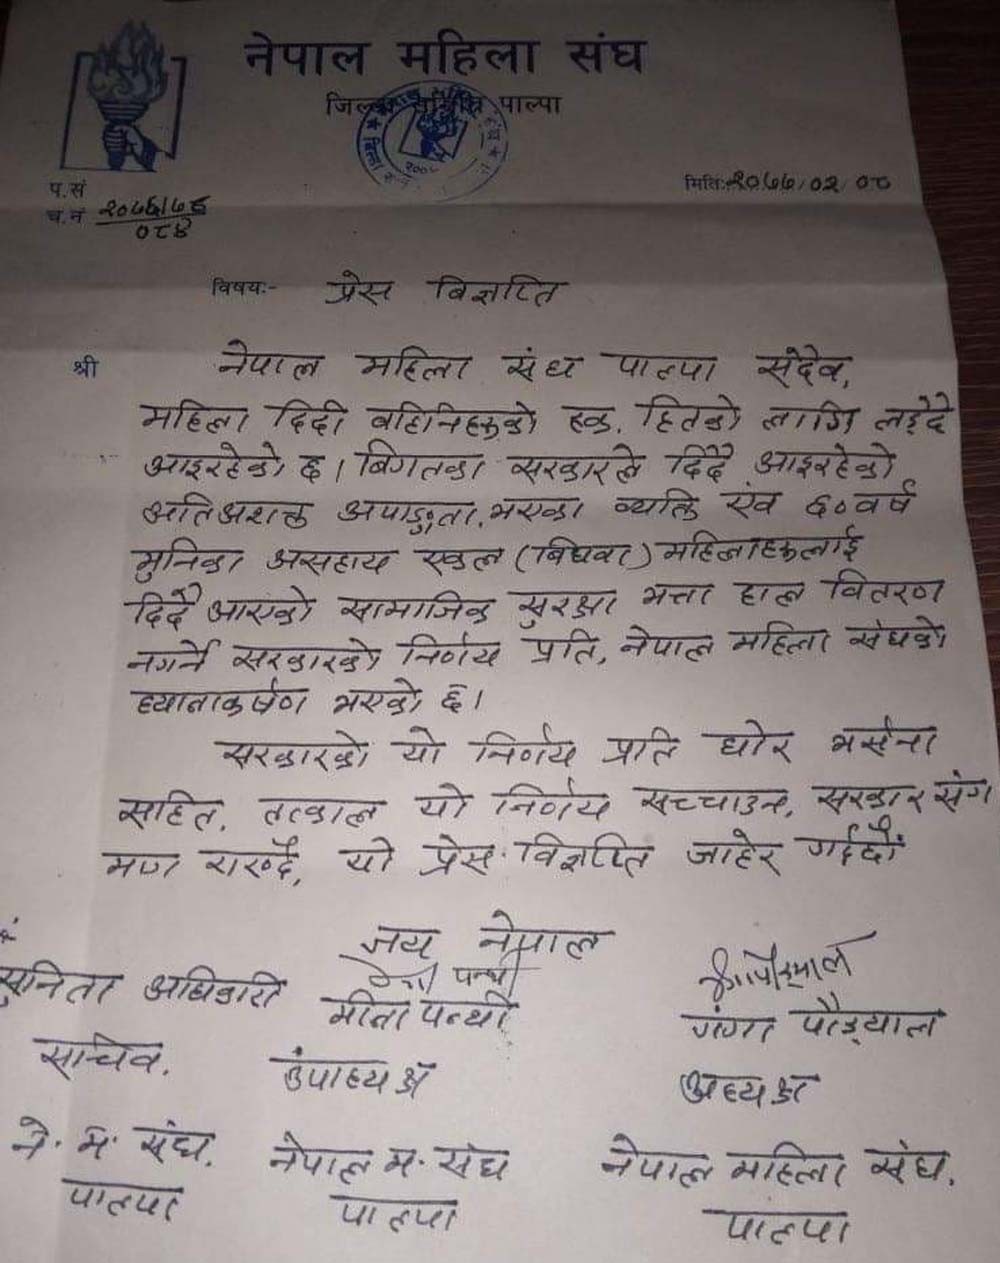 नेपाल महिला संघ
जिल्ला समिति पाल्पा
प.सं
मितिः-२०७७/०२/०८
च.नं २०७६/७७
०८४
विषयः- प्रेस विज्ञप्ति
श्री
नेपाल महिला संघ पाल्पा सदैव,
महिला दिदी वहिनिहरुको हक, हितको लागि लड्दै
आइरहेको छ। बिगतका सरकारले दिदै आइरहेको
अतिअशक्त अपाङ्गता भएका व्यक्ति एंव ६० वर्ष
मुनिका असहाय एकल (बिधवा) महिलाहरुलाई
दिदै आएको सामाजिक सुरक्षा भत्ता हाल वितरण
नगर्ने सरकारको निर्णय प्रति, नेपाल महिला संघको
ध्यानाकर्षण भएको छ।
सरकारको यो निर्णय प्रति घोर भर्सना
सहित, तत्काल यो निर्णय सच्चाउन, सरकार संग
माग राख्दै, यो प्रेस विज्ञप्ति जाहेर गर्दर्छौ
जय नेपाल
सुनिता अधिकारी
मीना पन्थी
गंगा पौड्याल
सचिव.
उपाध्यक्ष
अध्यक्ष
ने. म. संघ.
नेपाल म. संघ
नेपाल महिला संघ.
पाल्पा
पाल्पा
पाल्पा